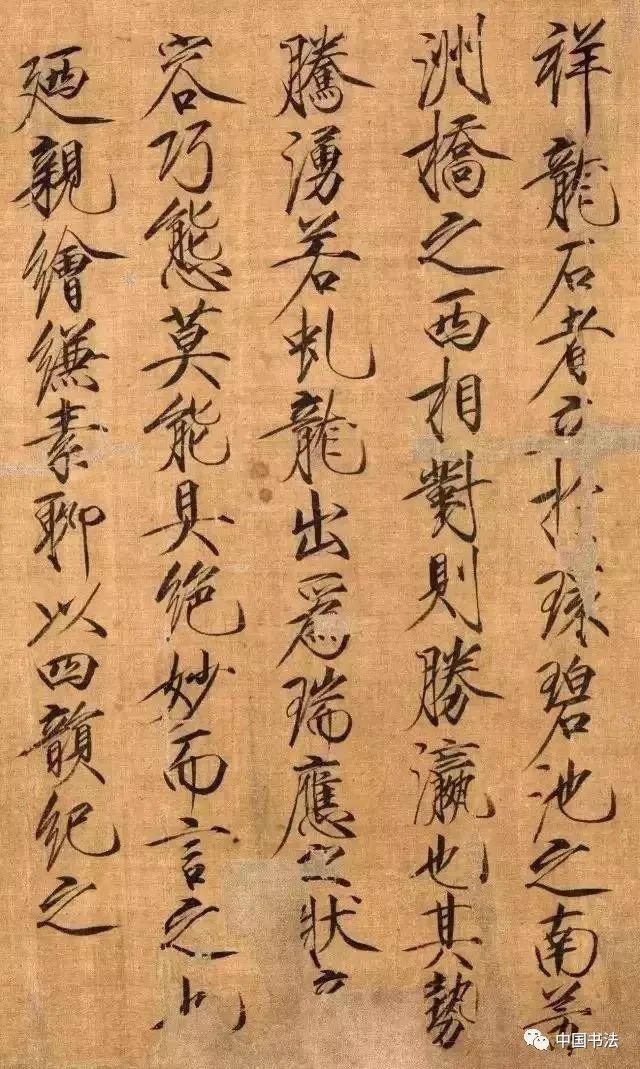 祥龍石者立於環碧池之南芳
洲橋之西相對則勝瀛也其勢
騰湧若虬龍出爲瑞應之狀奇
容巧態莫能具絶妙而言之也
廼親繪縑素聊以四韻紀之
中国书法